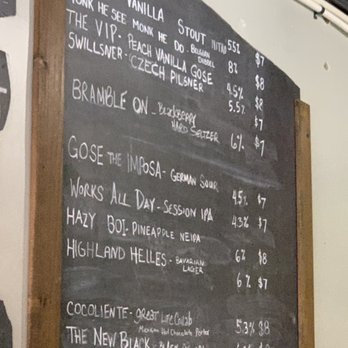 VANILLA STOUT NITRO 5.5% $7
MONK HE SEE MONK HE DO - BELGIAN DUBBEL 8% $8
THE VIP - PEACH VANILLA GOSE 4.5% $8
SWILLSNER - CZECH PILSNER 5.5% $7
BRAMBLE ON - BLACKBERRY HARD SELTZER 6% $7
GOSE THE IMPOSA - GERMAN SOUR 4.5% $7
WORKS ALL DAY - SESSION IPA 4.3% $7
HAZY BOI - PINEAPPLE NEIPA 6% $8
HIGHLAND HELLES - BAVARIAN LAGER 6% $7
COCOLIENTE - GREAT LIFE COLLAB
Mexican Hot Chocolate Porter 5.3% $8
THE NEW BLACK -